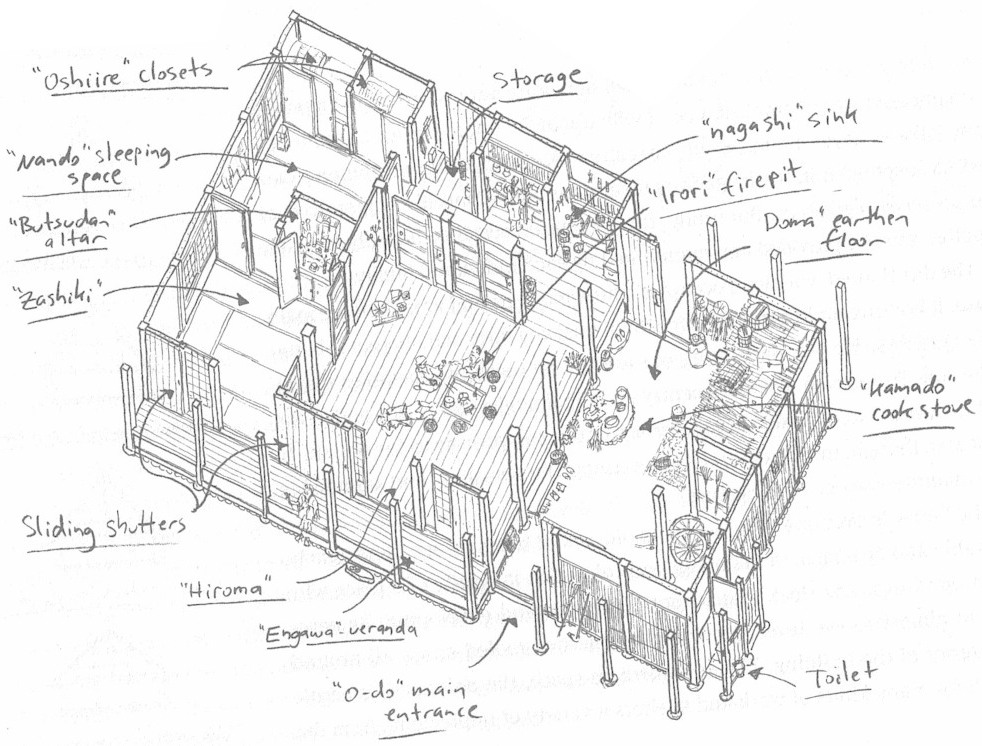 "Oshiire" closets
Storage
"nagashi" sink
"Nando" sleeping
space
"Irori" firepit
"Butsudan"
altar
Doma" earthen
floor
"Zashiki"
"Kamado"
cook stove
Sliding shutters
"Hiroma"
"Engawa"-veranda
"O-do" main
entrance
Toilet